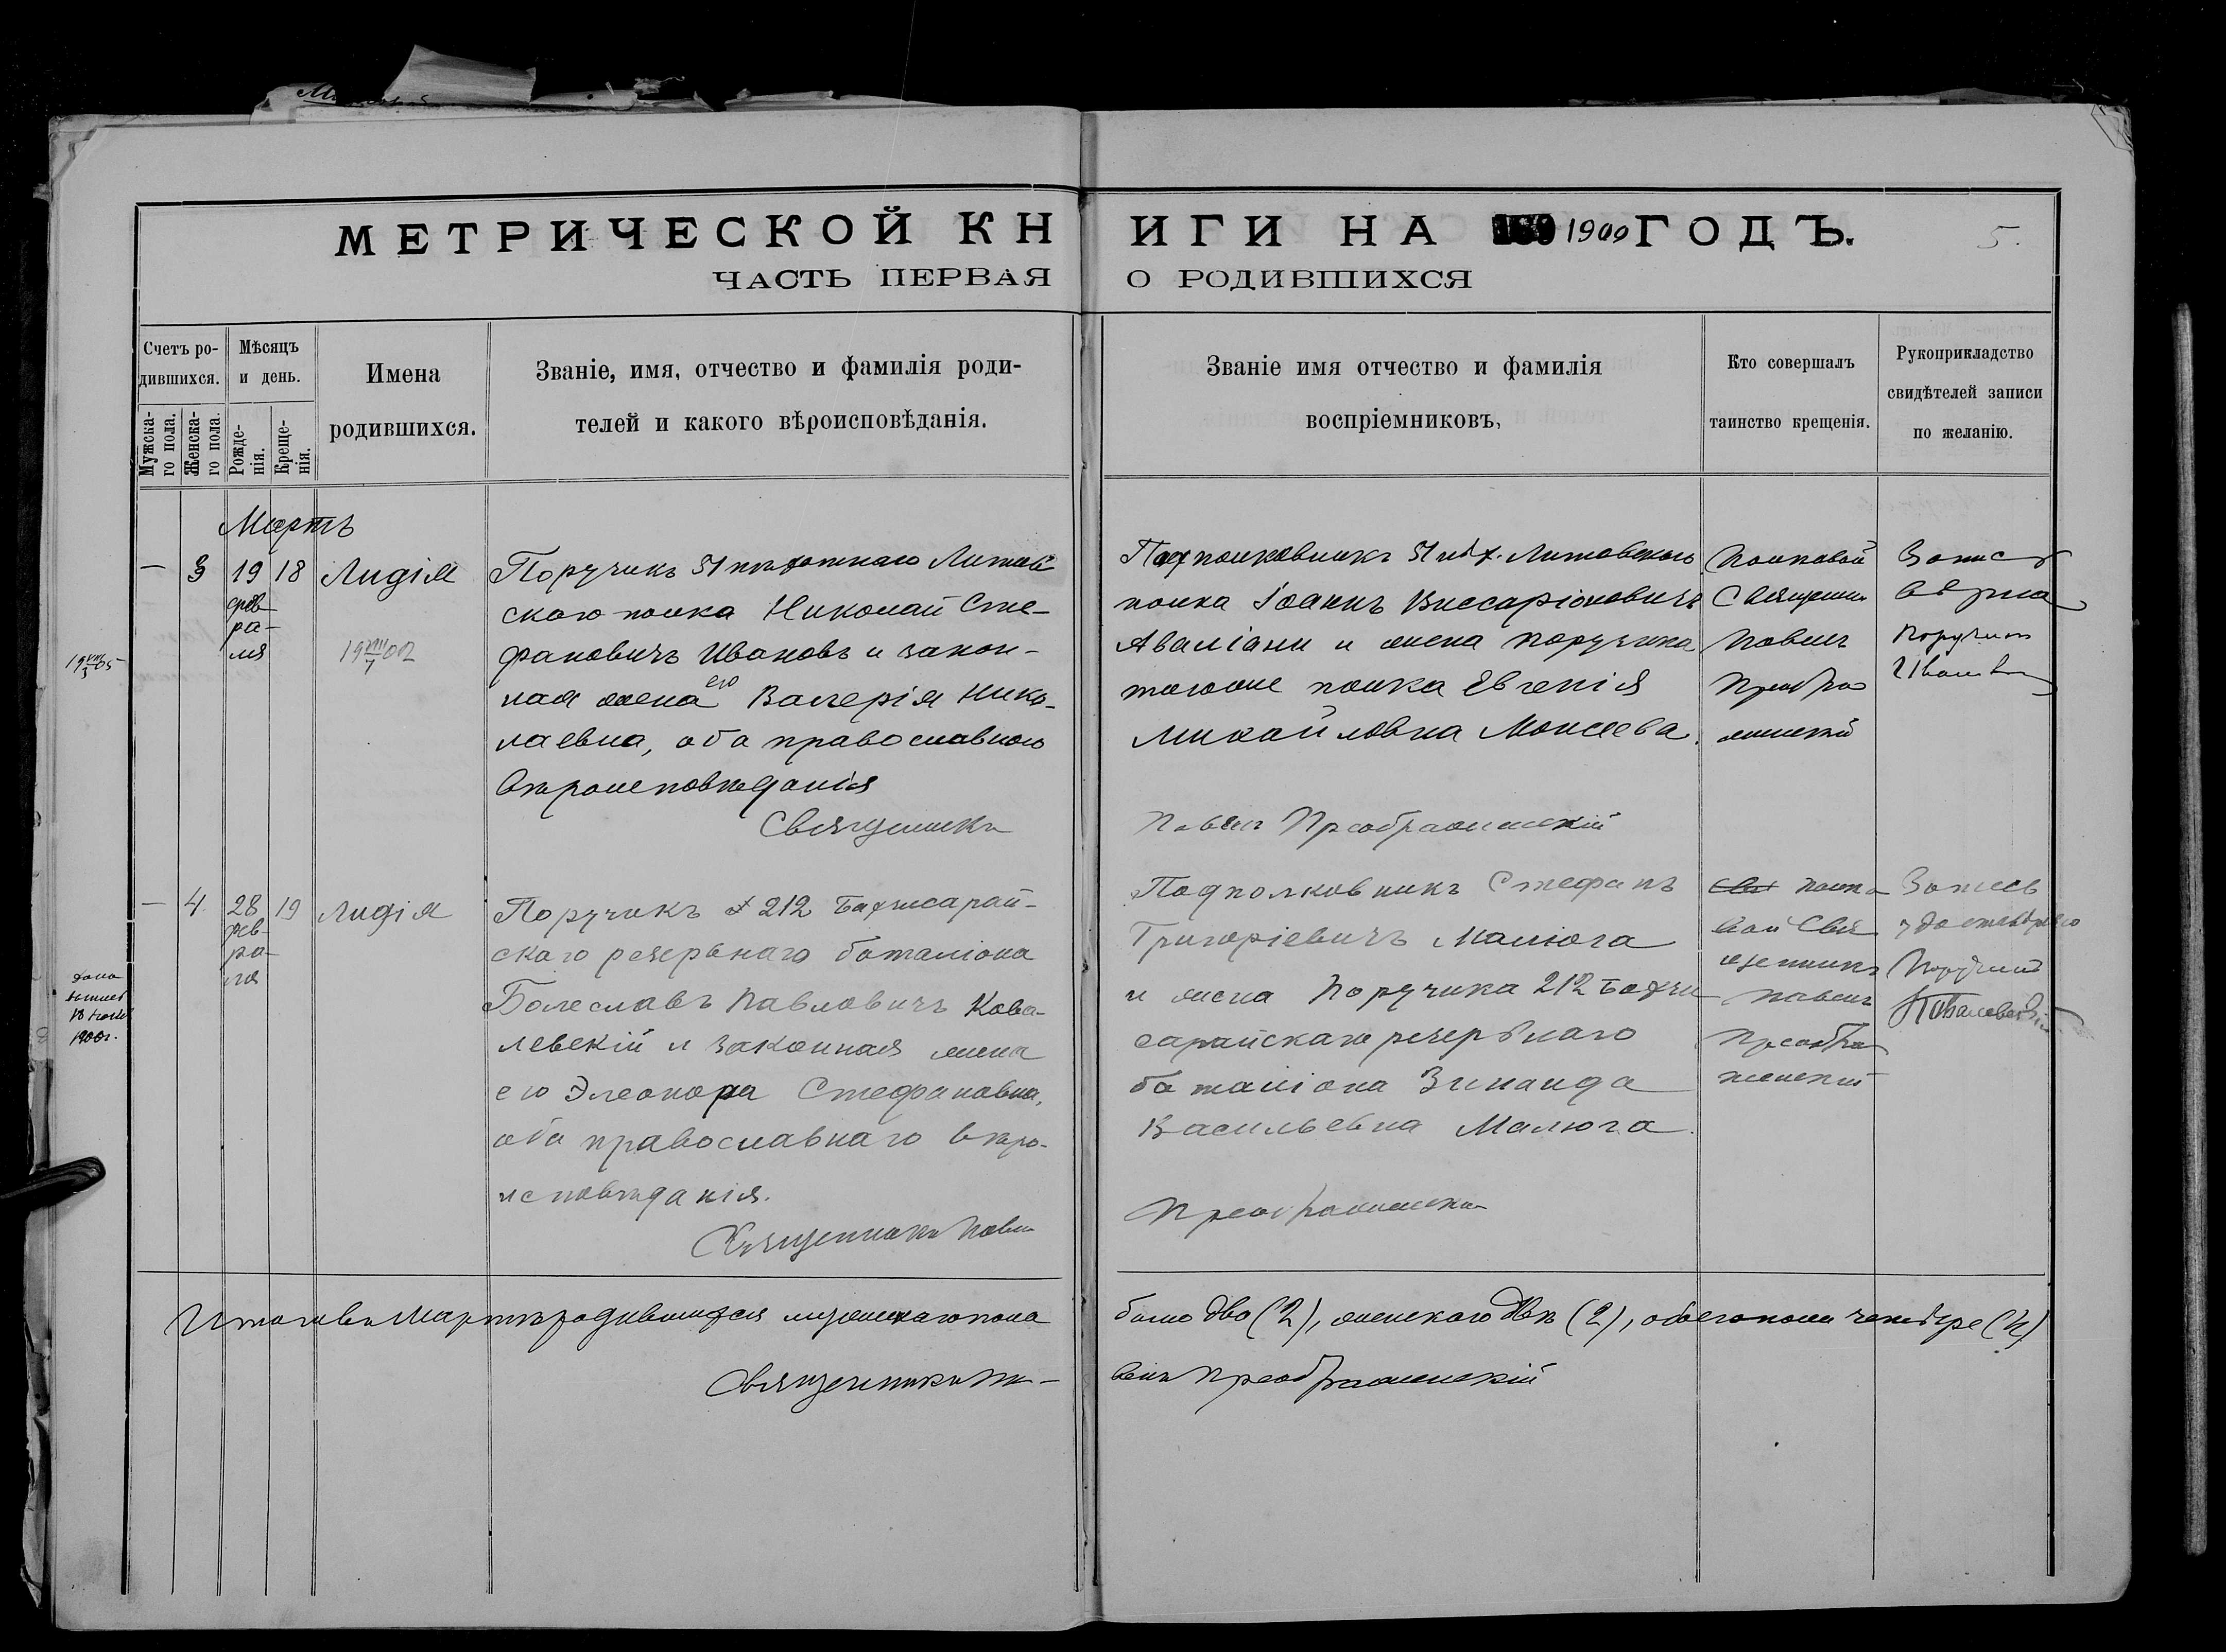 МЕТРИЧЕСКОЙ КНИГИ НА 1900 ГОДЪ.
5.
ЧАСТЬ ПЕРВАЯ О РОДИВШИХСЯ
Счетъ ро-
дившихся.
Мужска-
го пола.
Женска-
го пола.
Мѣсяцъ
и день.
Рожде-
нія.
Креще-
нія.
Имена
родившихся.
Званіе, имя, отчество и фамилія роди-
телей и какого вѣроисповѣданія.
Званіе имя отчество и фамилія
воспріемниковъ,
Кто совершалъ
таинство крещенія.
Рукоприкладство
свидѣтелей записи
по желанію.
Мартъ
— 3 19 18 Лидія
фев-
ра-
ля
Поручикъ 51 пѣхотнаго Литов
скаго полка Николай Сте-
фановичъ Ивановъ и закон-
ная жена его Валерія Нико-
лаевна, оба православнаго
вѣроисповѣданія
Священникъ
Подполковникъ 51 пѣх. Литовскаго
полка Іоаннъ Виссаріоновичъ
Аваліани и жена поручика
тогоже полка Евгенія
Михайловна Моисеева.
Павелъ Преображенскій
Полковой
Священни
Павелъ
Преобра
женскій
Запись
вѣрна
Поручикъ
Ивановъ
— 4 28 19 Лидія
фев-
ра-
ля
Поручикъ 212 Бахчисарай-
скаго резервнаго баталіона
Болеславъ Павловичъ Кова-
левскій и законная жена
его Элеонора Стефановна,
оба православнаго вѣро-
исповѣданія.
Священникъ Павелъ
Подполковникъ Стефанъ
Григоріевичъ Малюга
и жена Поручика 212 Бахчи
сарайскаго резервнаго
баталіона Зинаида
Васильевна Малюга.
Преображенскій
полко
вой Свя
щенникъ
Павелъ
Преобра
женскій
Запись
удостовѣряю
Поручикъ
Ковалевскій
1900г.
Итого въ Мартѣ родившихся мужескаго пола
было два (2), женскаго двѣ (2), обоего пола четыре (4)
Священникъ Па-
велъ Преображенскій